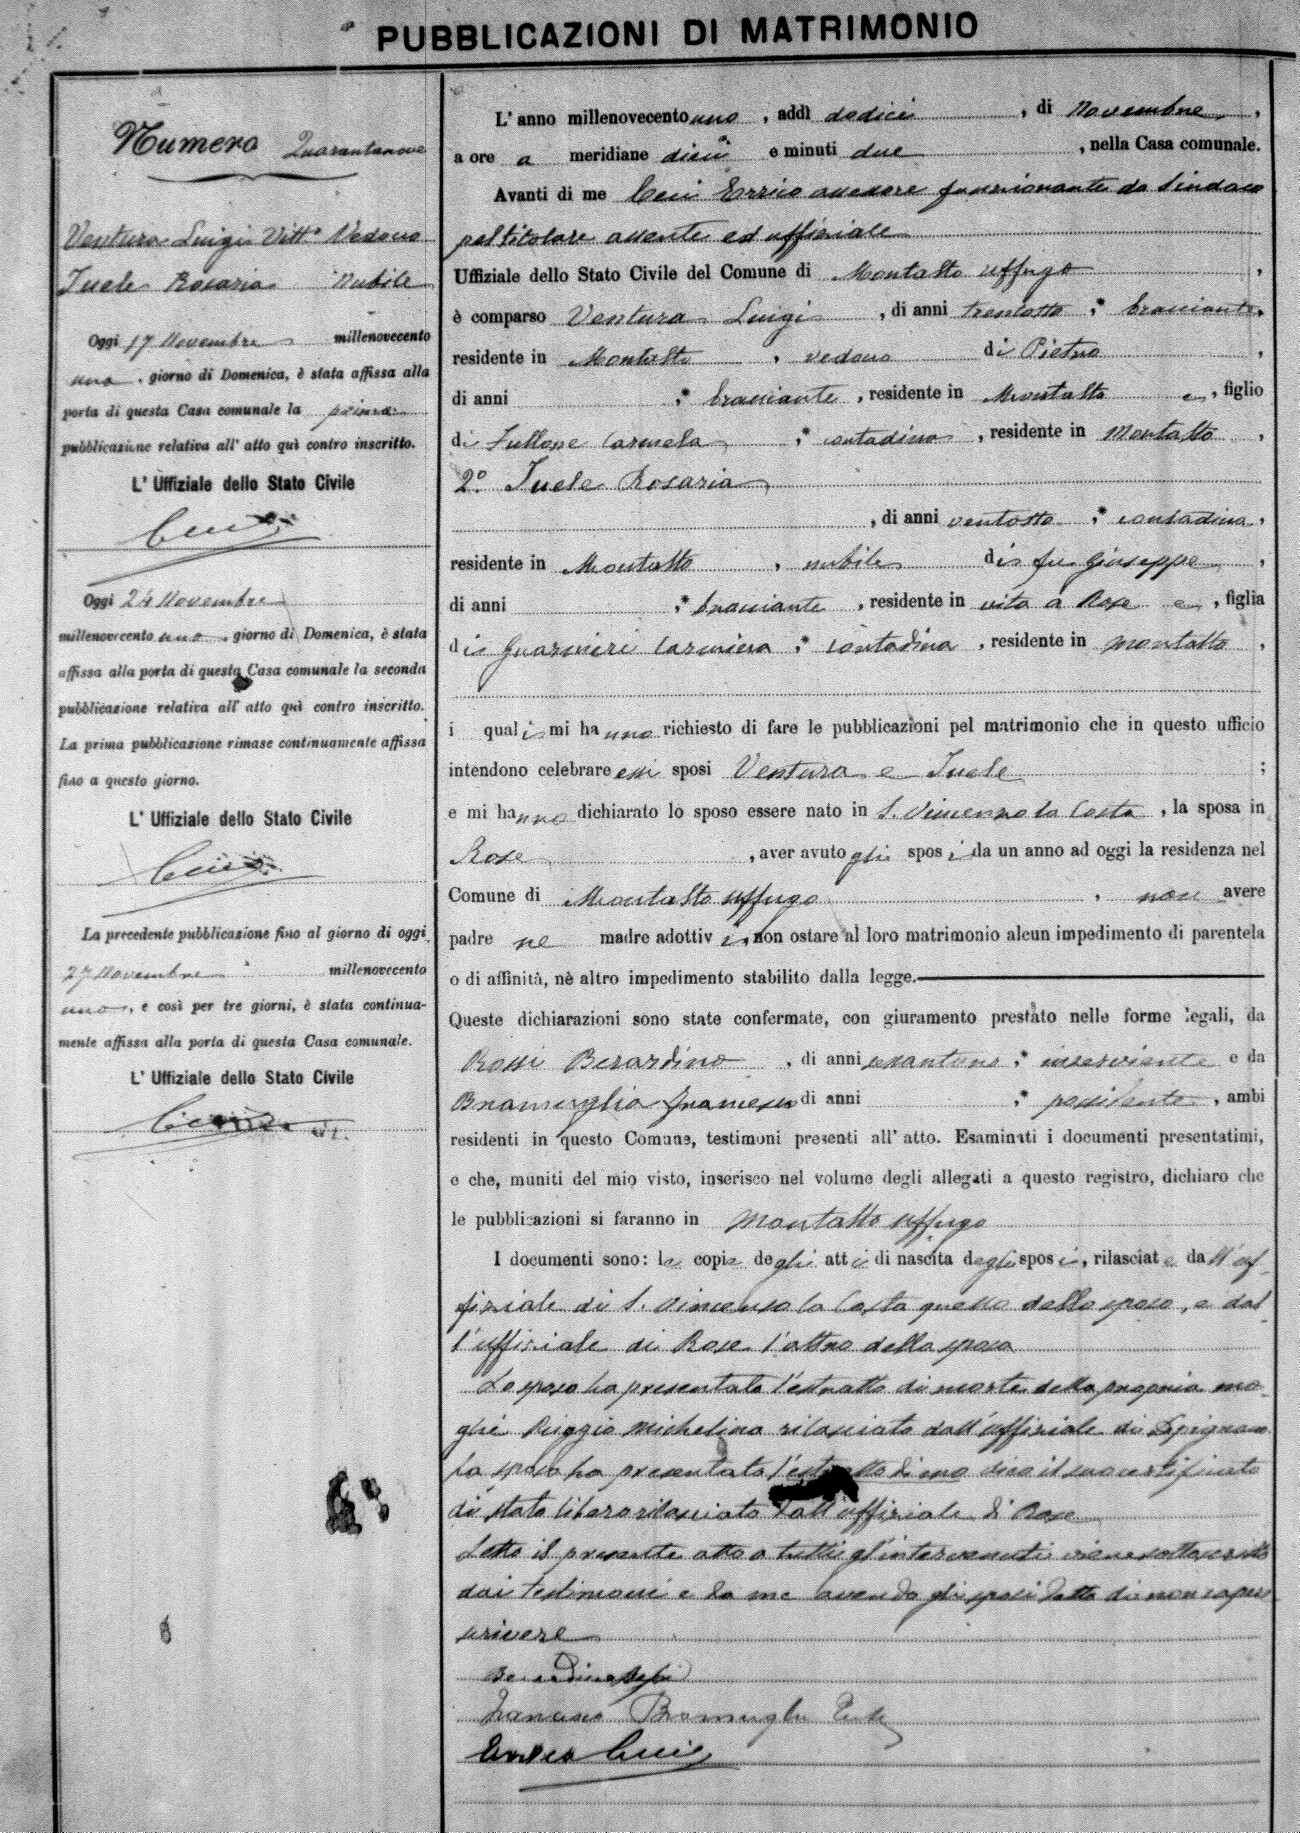 PUBBLICAZIONI DI MATRIMONIO
Numero Quarantanove
Ventura Luigi Vitt° Vedovo
Iuele Rosaria Nubile
Oggi 17 Novembre millenovecento
uno, giorno di Domenica, è stata affissa alla
porta di questa Casa comunale la prima
pubblicazione relativa all' atto quì contro inscritto.
L' Uffiziale dello Stato Civile
Oggi 24 Novembre
millenovecento uno, giorno di Domenica, è stata
affissa alla porta di questa Casa comunale la seconda
pubblicazione relativa all' atto quì contro inscritto.
La prima pubblicazione rimase continuamente affissa
fino a questo giorno.
L' Uffiziale dello Stato Civile
La precedente pubblicazione fino al giorno di oggi
27 Novembre millenovecento
uno, e così per tre giorni, è stata continua-
mente affissa alla porta di questa Casa comunale.
L' Uffiziale dello Stato Civile
L' anno millenovecento uno, addì dodici, di Novembre,
a ore a meridiane dieci e minuti due, nella Casa comunale.
Avanti di me Errico assessore funzionante da Sindaco
pel titolare assente ed uffiziale
Uffiziale dello Stato Civile del Comune di Montalto Uffugo,
è comparso Ventura Luigi, di anni trentotto, bracciante,
residente in Montalto, vedovo di Pietro,
di anni , bracciante, residente in Montalto e, figlio
di Fullone Carmela, contadina, residente in Montalto,
2.° Iuele Rosaria
, di anni ventotto, contadina,
residente in Montalto, nubile di fu Giuseppe,
di anni , bracciante, residente in vita a Rose e, figlia
di Guarnieri Carmina, contadina, residente in Montalto,
i quali mi hanno richiesto di fare le pubblicazioni pel matrimonio che in questo ufficio
intendono celebrare essi sposi Ventura e Iuele ;
e mi hanno dichiarato lo sposo essere nato in S. Vincenzo la Costa, la sposa in
Rose, aver avuto gli sposi da un anno ad oggi la residenza nel
Comune di Montalto Uffugo, non avere
padre ne madre adottivi, non ostare al loro matrimonio alcun impedimento di parentela
o di affinità, nè altro impedimento stabilito dalla legge.
Queste dichiarazioni sono state confermate, con giuramento prestato nelle forme legali, da
Rossi Berardino, di anni , inserviente e da
Bramuglia Francesco di anni , possidente, ambi
residenti in questo Comune, testimoni presenti all' atto. Esaminati i documenti presentatimi,
e che, muniti del mio visto, inserisco nel volume degli allegati a questo registro, dichiaro che
le pubblicazioni si faranno in Montalto Uffugo
I documenti sono: le copie degli atti di nascita degli sposi, rilasciate dall' uf-
fiziale di S. Vincenzo la Costa quello dello sposo, e dal
l'uffiziale di Rose l'altro della sposa
Lo sposo ha presentato l'estratto di morte della propria mo-
glie Michelina rilasciato dall'uffiziale di
La sposa ha presentato l'estratto di mo dico il suo certificato
di stato libero rilasciato dall'uffiziale di Rose
Letto il presente atto a tutti gl'intervenuti viene sottoscritto
dai testimoni e da me avendo gli sposi detto di non sapere
scrivere
Berardino Rossi
Francesco Bramuglia